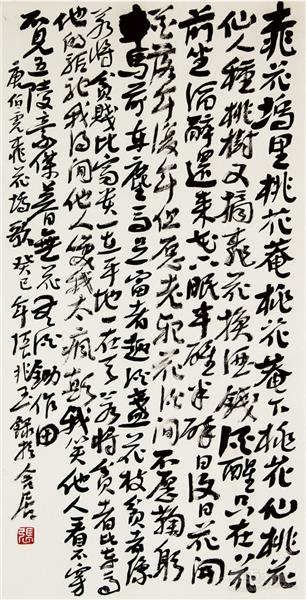 桃花塢里桃花菴桃花菴下桃花仙桃花
仙人種桃樹又摘桃花換酒錢酒醒只在花
前坐酒醉還來花下眠半醒半醉日復日花開
花落年復年但願老死花酒間不願鞠躬
車馬前車塵馬足富者趣酒盞花枝貧者緣
若將貧賤比富貴一在平地一在天若將貧者比車馬
他的驅馳我得閒他人笑我太瘋顛我笑他人看不穿
不見五陵豪傑墓無花無酒鋤作田
唐伯虎桃花塢歌癸巳年張兆玉錄於
張